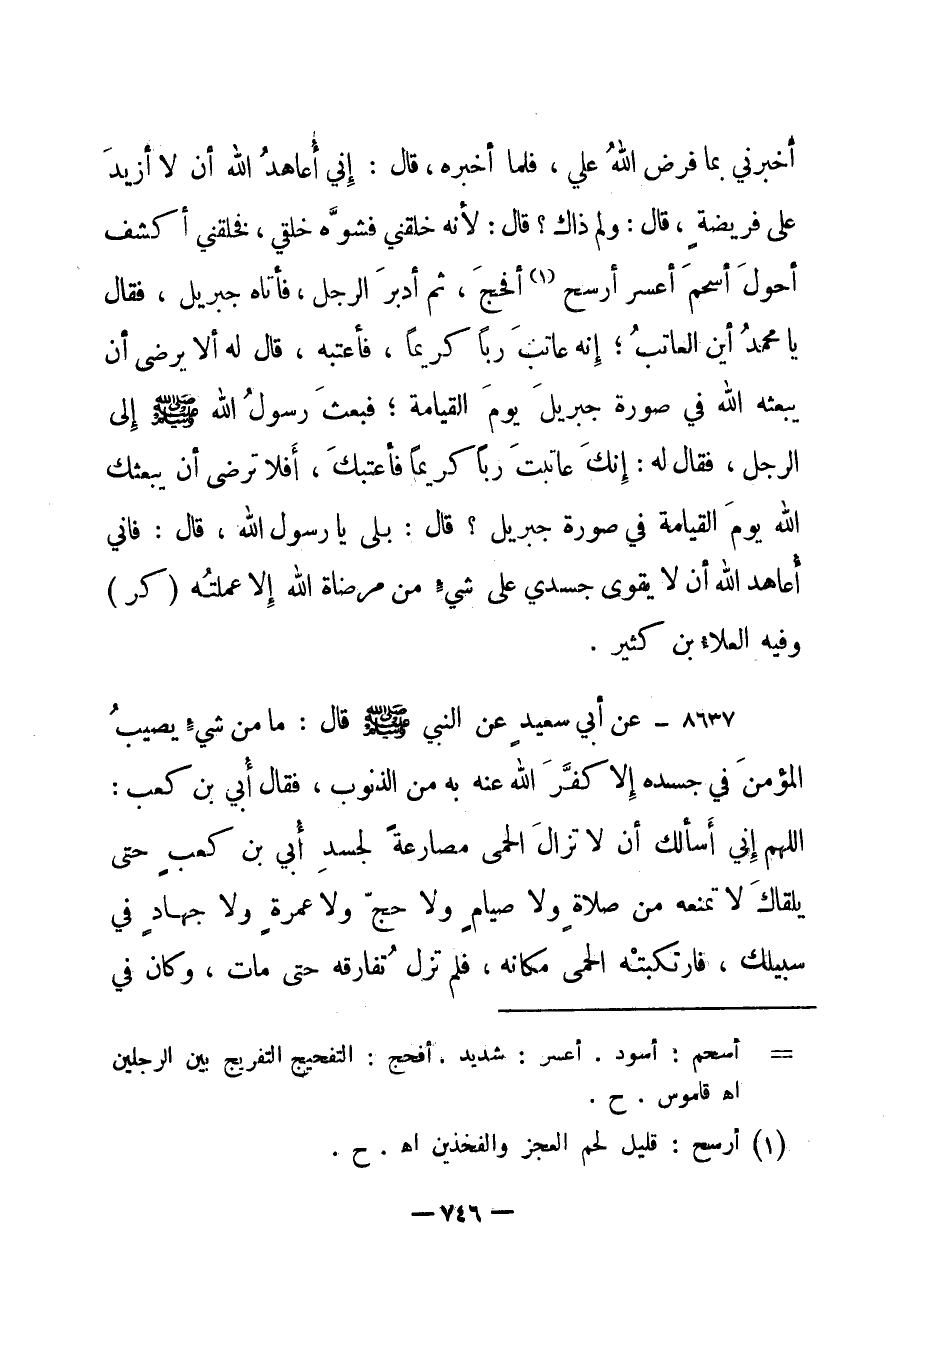 أخبرني بما فرض اللهُ علي ، فلما أخبره ، قال : إني أُعاهدُ الله أن لا أزيدَ
على فريضةٍ ، قال : ولم ذاك ؟ قال : لأنه خلقني فشوَّه خلقي ، فخلقني أكشف
أحولَ أسحمَ أعسر أرسح (١) أفحجَ ، ثم أدبرَ الرجل ، فأتاه جبريل ، فقال
يا محمدُ أين العاتبُ ؛ إنه عاتبَ رباً كريماً ، فأعتبه ، قال له ألا يرضى أن
يبعثه الله في صورة جبريلَ يومَ القيامة ؛ فبعثَ رسولُ الله ﷺ إلى
الرجل ، فقال له : إنكَ عاتبتَ رباً كريماً فأعتبكَ ، أفلا ترضى أن يبعثك
الله يومَ القيامة في صورة جبريل ؟ قال : بلى يا رسول الله ، قال : فاني
أُعاهد الله أن لا يقوى جسدي على شيءٍ من مرضاة الله إلا عملتُه ( كر )
وفيه العلاء بن كثير .
٨٦٣٧ - عن أبي سعيدٍ عن النبي ﷺ قال : ما من شيءٍ يصيبُ
المؤمنَ في جسده إلا كفَّرَ الله عنه به من الذنوب ، فقال أُبي بن كعب :
اللهم إني أسألك أن لا تزالَ الحمى مصارعةً لجسدِ أُبي بن كعبٍ حتى
يلقاكَ لا تمنعه من صلاةٍ ولا صيامٍ ولا حجّ ولا عمرةٍ ولا جهادٍ في
سبيلك ، فارتكبتْه الحمى مكانه ، فلم تزل تُفارقه حتى مات ، وكان في
= أسحم : أسود . أعسر : شديد . أفحج : التفحيج التفريج بين الرجلين
اه قاموس . ح .
(١) أرسح : قليل لحم العجز والفخذين اه . ح .
— ٧٤٦ —